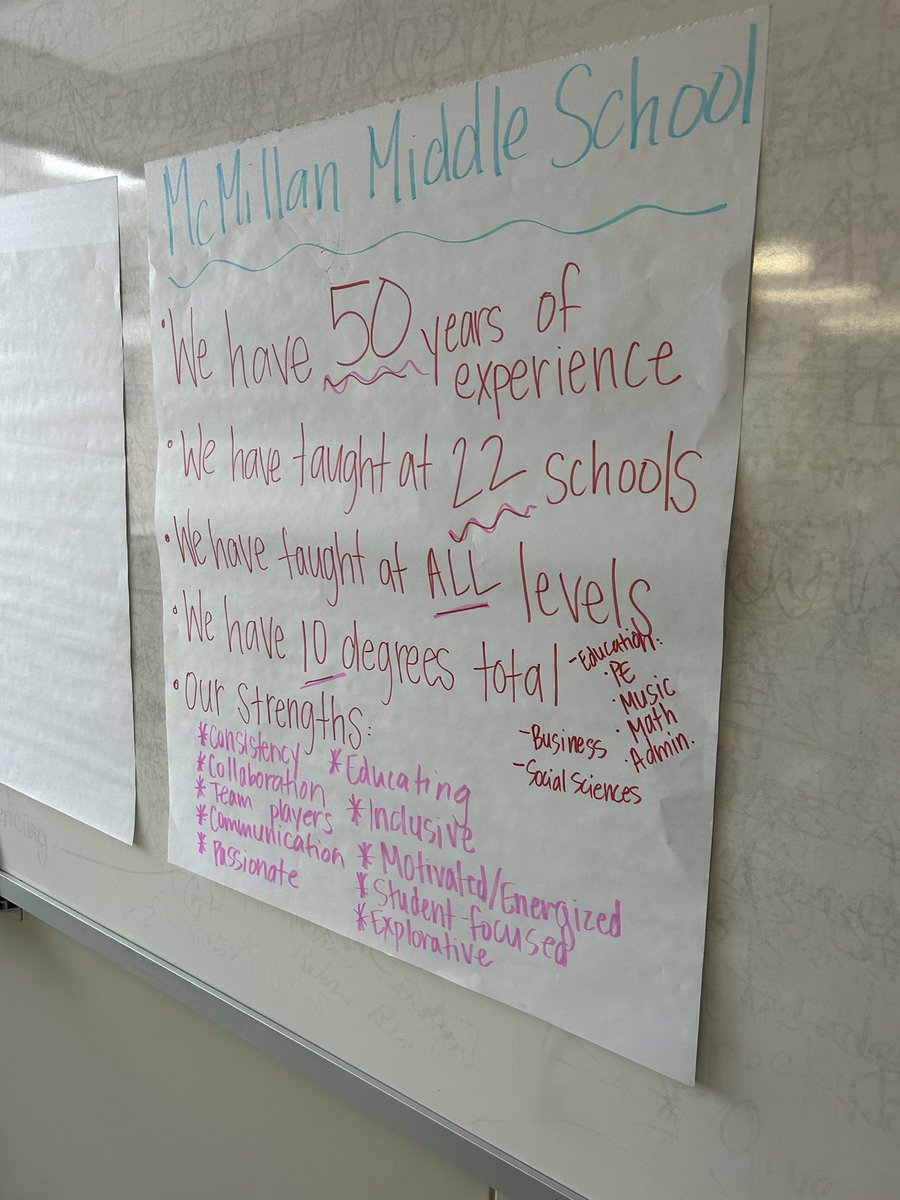 McMillan Middle School
• We have 50 years of
experience
• We have taught at 22 schools
• We have taught at ALL levels
• We have 10 degrees total
- Education:
• PE
• Music
• Math
• Admin.
- Business
- Social Sciences
• Our Strengths:
* Consistency
* Collaboration
* Team players
* Communication
* Passionate
* Educating
* Inclusive
* Motivated/Energized
* Student-focused
* Explorative